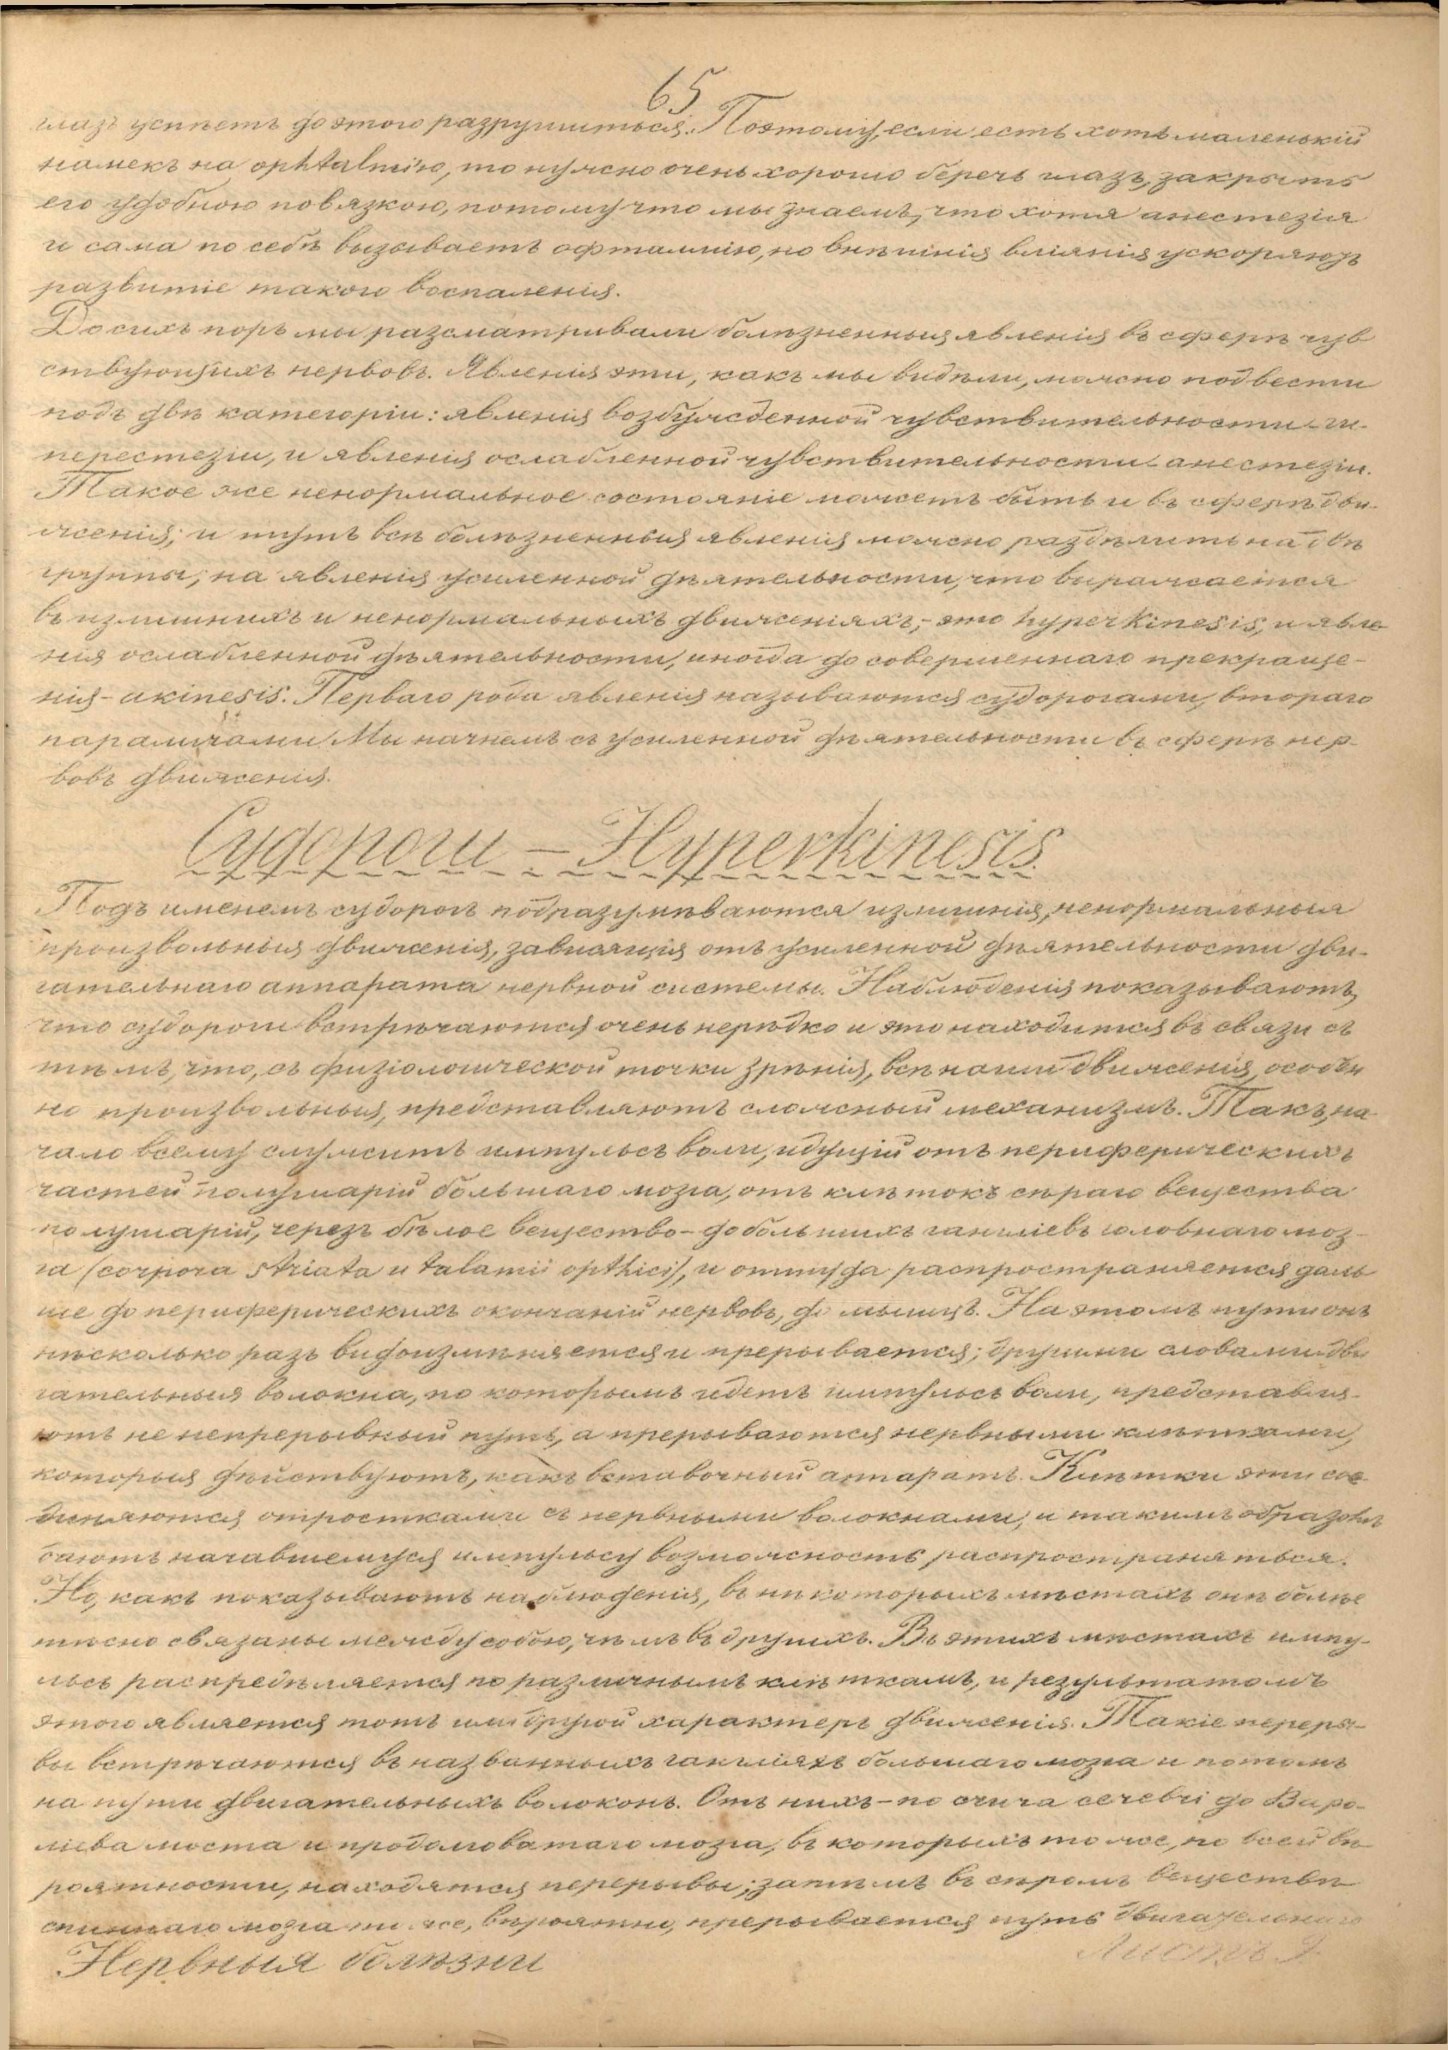 65
глазъ успѣетъ до этого разрушиться. Поэтому, если есть хоть маленькій
намекъ на ophtalmi'ю, то нужно очень хорошо беречь глазъ, закрыть
его удобною повязкою, потому что мы знаемъ, что хотя анестезія
и сама по себѣ вызываетъ офталмію, но внѣшнія вліянія ускоряютъ
развитіе такого воспаленія.
До сихъ поръ мы разсматривали болѣзненныя явленія въ сферѣ чув
ствующихъ нервовъ. Явленія эти, какъ мы видѣли, можно подвести
подъ двѣ категоріи: явленія возбужденной чувствительности - ги-
перестезіи, и явленія ослабленной чувствительности - анестезіи.
Такое же ненормальное состояніе можетъ быть и въ сферѣ дви-
женія; и тутъ всѣ болѣзненныя явленія можно раздѣлить на двѣ
группы; на явленія усиленной дѣятельности, что выражается
въ излишнихъ и ненормальныхъ движеніяхъ; - это hyperkinesis, и явле
нія ослабленной дѣятельности, иногда до совершеннаго прекраще-
нія - akinesis. Перваго рода явленія называются судорогами, втораго
параличами. Мы начнемъ съ усиленной дѣятельности въ сферѣ нер-
вовъ движенія.
Судороги – Hyperkinesis.
Подъ именемъ судорогъ подразумѣваются излишнія, ненормальныя
произвольныя движенія, зависящія отъ усиленной дѣятельности дви-
гательнаго аппарата нервной системы. Наблюденія показываютъ,
что судороги встрѣчаются очень нерѣдко и это находится въ связи съ
тѣмъ, что, съ физіологической точки зрѣнія, всѣ наши движенія, особен
но произвольныя, представляютъ сложный механизмъ. Такъ, на-
чало всему служитъ импульсъ воли, идущій отъ периферическихъ
частей полушарій большаго мозга, отъ клѣтокъ сѣраго вещества
полушарій, черезъ бѣлое вещество - до большихъ гангліевъ головнаго моз-
га (corpora striata и talamii opthici), и оттуда распространяется даль
ше до периферическихъ окончаній нервовъ, до мышцъ. На этомъ пути онъ
нѣсколько разъ видоизмѣняется и прерывается; другими словами дви
гательныя волокна, по которымъ идетъ импульсъ воли, представля-
ютъ не непрерывный путь, а прерываются нервными клѣтками,
которыя дѣйствуютъ, какъ вставочный аппаратъ. Клѣтки эти сое
диняются отростками съ нервными волокнами, и такимъ образомъ
даютъ начавшемуся импульсу возможность распространяться.
Но, какъ показываютъ наблюденія, въ нѣкоторыхъ мѣстахъ онѣ болѣе
тѣсно связаны между собою, чѣмъ въ другихъ. Въ этихъ мѣстахъ импу-
льсъ распредѣляется по различнымъ клѣткамъ, и результатомъ
этого является тотъ или другой характеръ движенія. Такіе переры-
вы встрѣчаются въ названныхъ гангліяхъ большаго мозга и потомъ
на пути двигательныхъ волоконъ. Отъ нихъ - по до Варо-
ліева моста и продолговатаго мозга, въ которыхъ тоже, по всей вѣ-
роятности, находятся перерывы; затѣмъ въ сѣромъ веществѣ
спиннаго мозга тоже, вѣроятно, прерывается путь двигательнаго
Нервныя болѣзни Листъ 9.